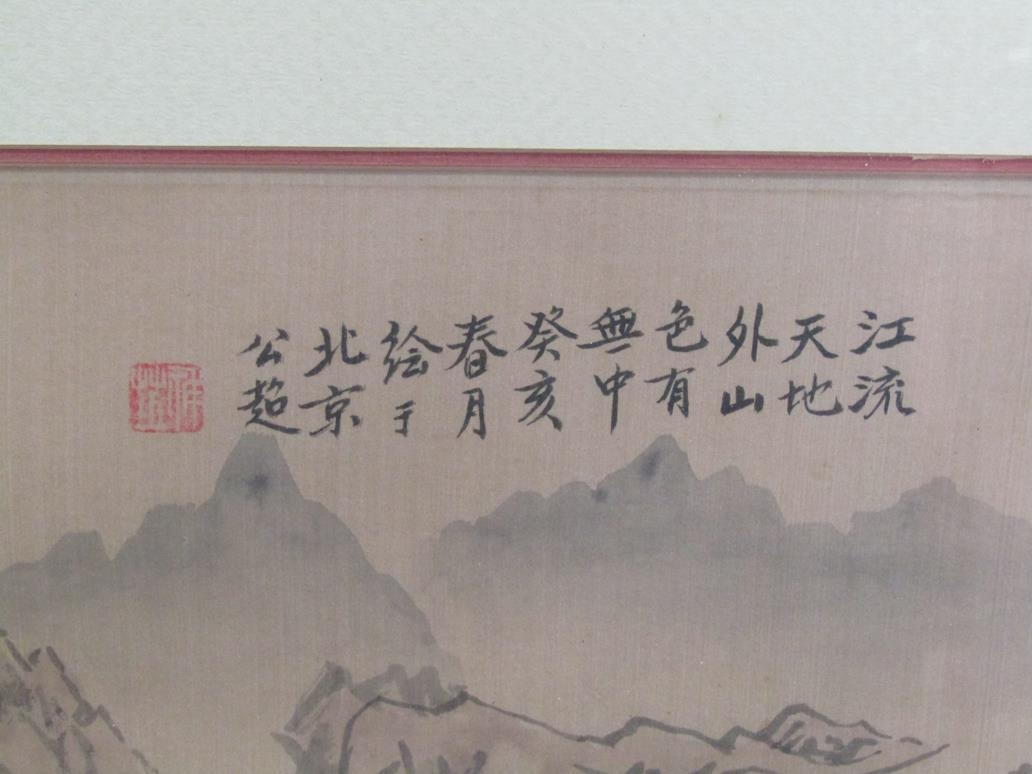 江流
天地
外山
色有
無中
癸亥
春月
绘于
北京
公超